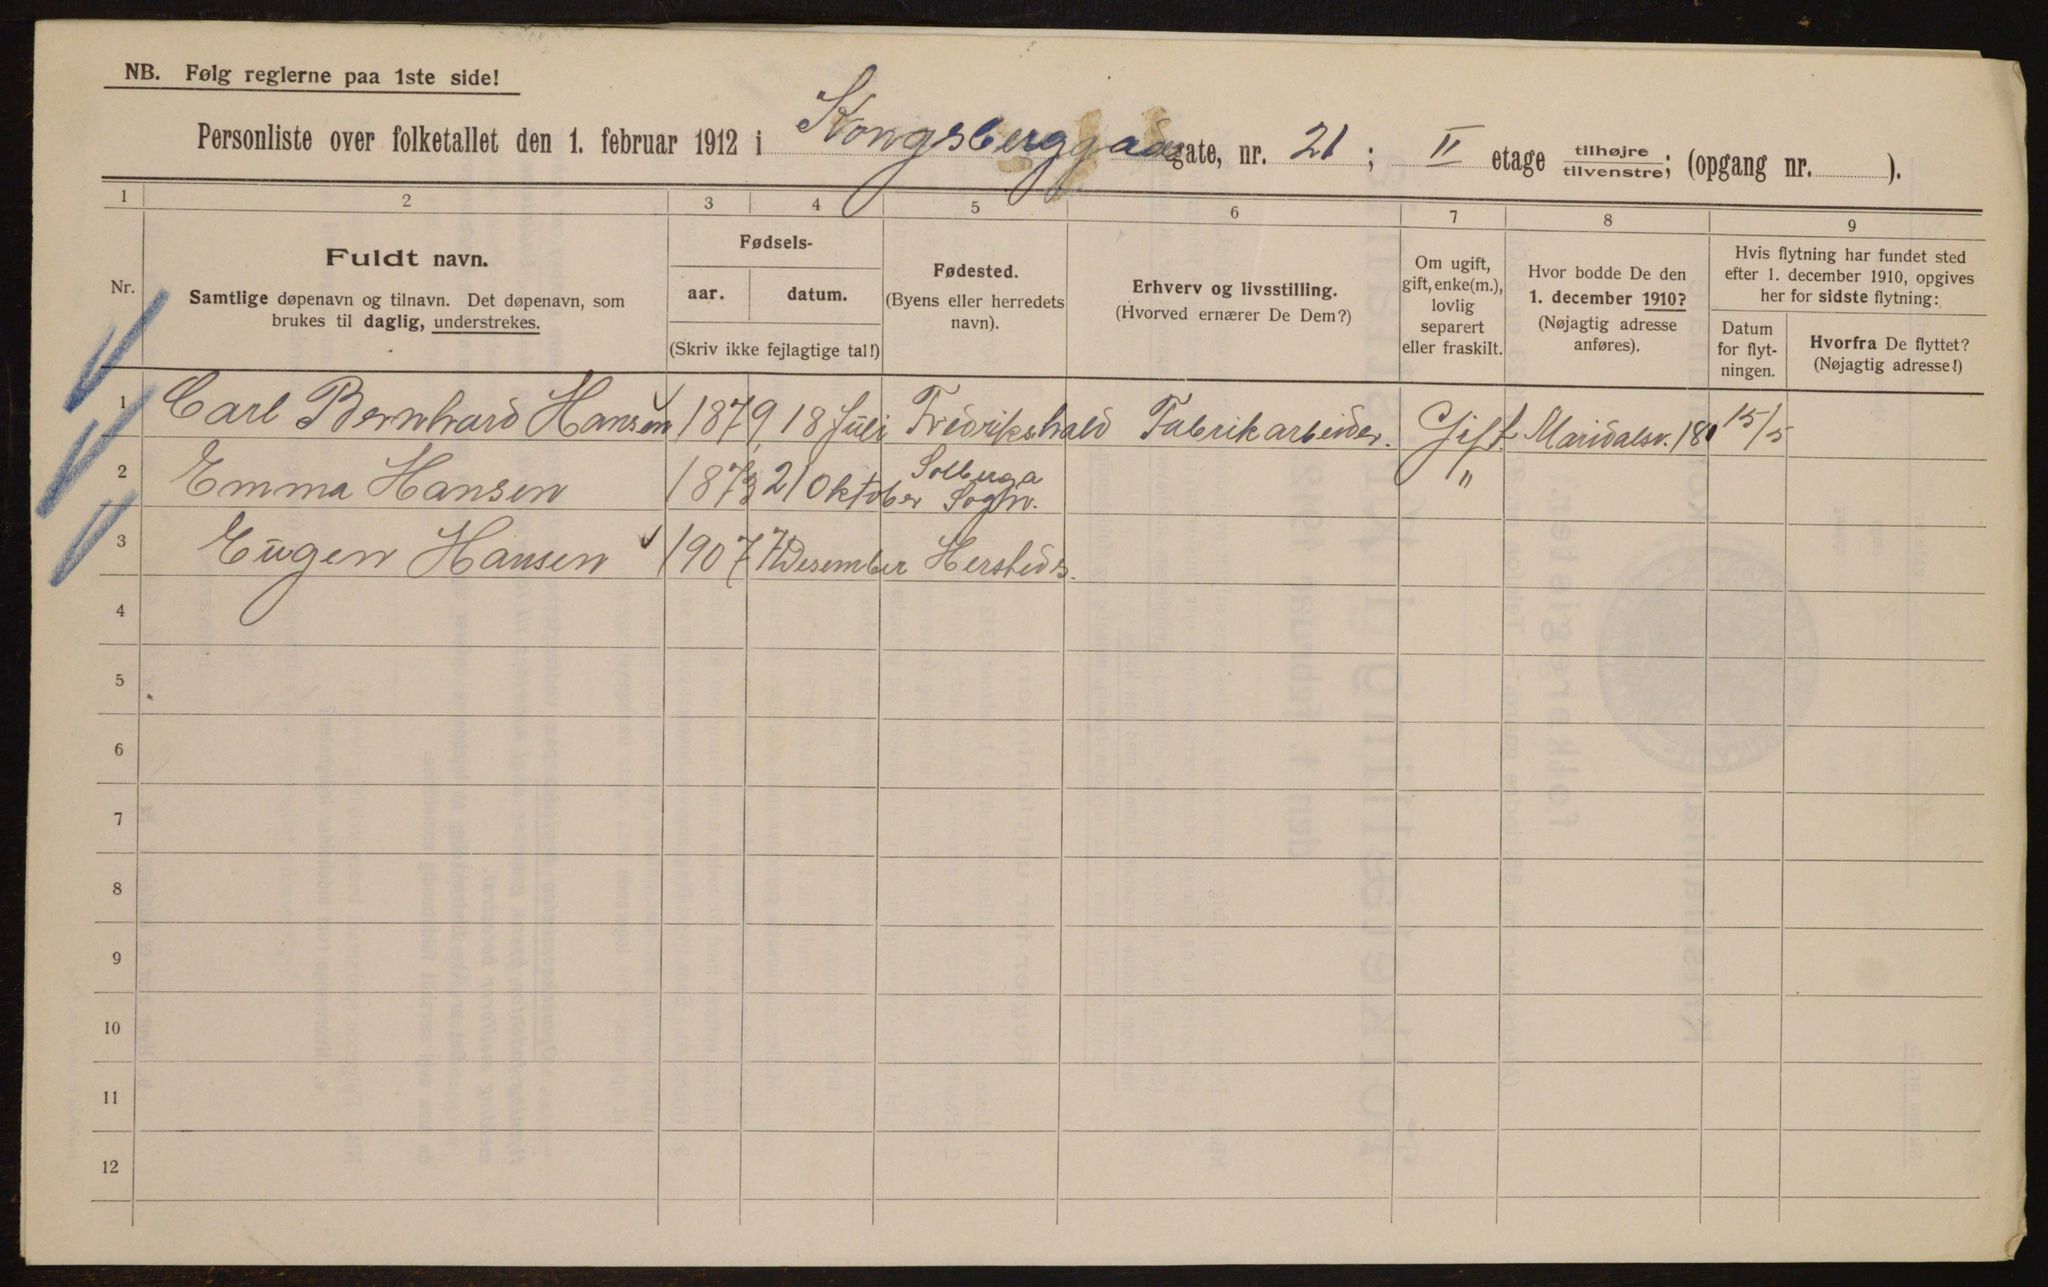 NB. Følg reglerne paa 1ste side!
Personliste over folketallet den 1. februar 1912 i Kongsberggaden gate, nr. 21; II etage tilhøjre/tilvenstre; (opgang nr. ).
1 2 3 4 5 6 7 8 9
Nr.
Fuldt navn.
Samtlige døpenavn og tilnavn. Det døpenavn, som
brukes til daglig, understrekes.
Fødsels-
aar. datum.
(Skriv ikke fejlagtige tal!)
Fødested.
(Byens eller herredets
navn).
Erhverv og livsstilling.
(Hvorved ernærer De Dem?)
Om ugift,
gift, enke(m.),
lovlig
separert
eller fraskilt.
Hvor bodde De den
1. december 1910?
(Nøjagtig adresse
anføres).
Hvis flytning har fundet sted
efter 1. december 1910, opgives
her for sidste flytning:
Datum
for flyt-
ningen.
Hvorfra De flyttet?
(Nøjagtig adresse!)
1 Carl Bernhard Hansen 1879 18 Juli Fredrikshald Fabrikarbeider. Gift Maridalsv. 15/5
2 Emma Hansen 1873 21 Oktober Solberga Sogn. "
3 Eugen Hansen 1907 7 Desember
4
5
6
7
8
9
10
11
12